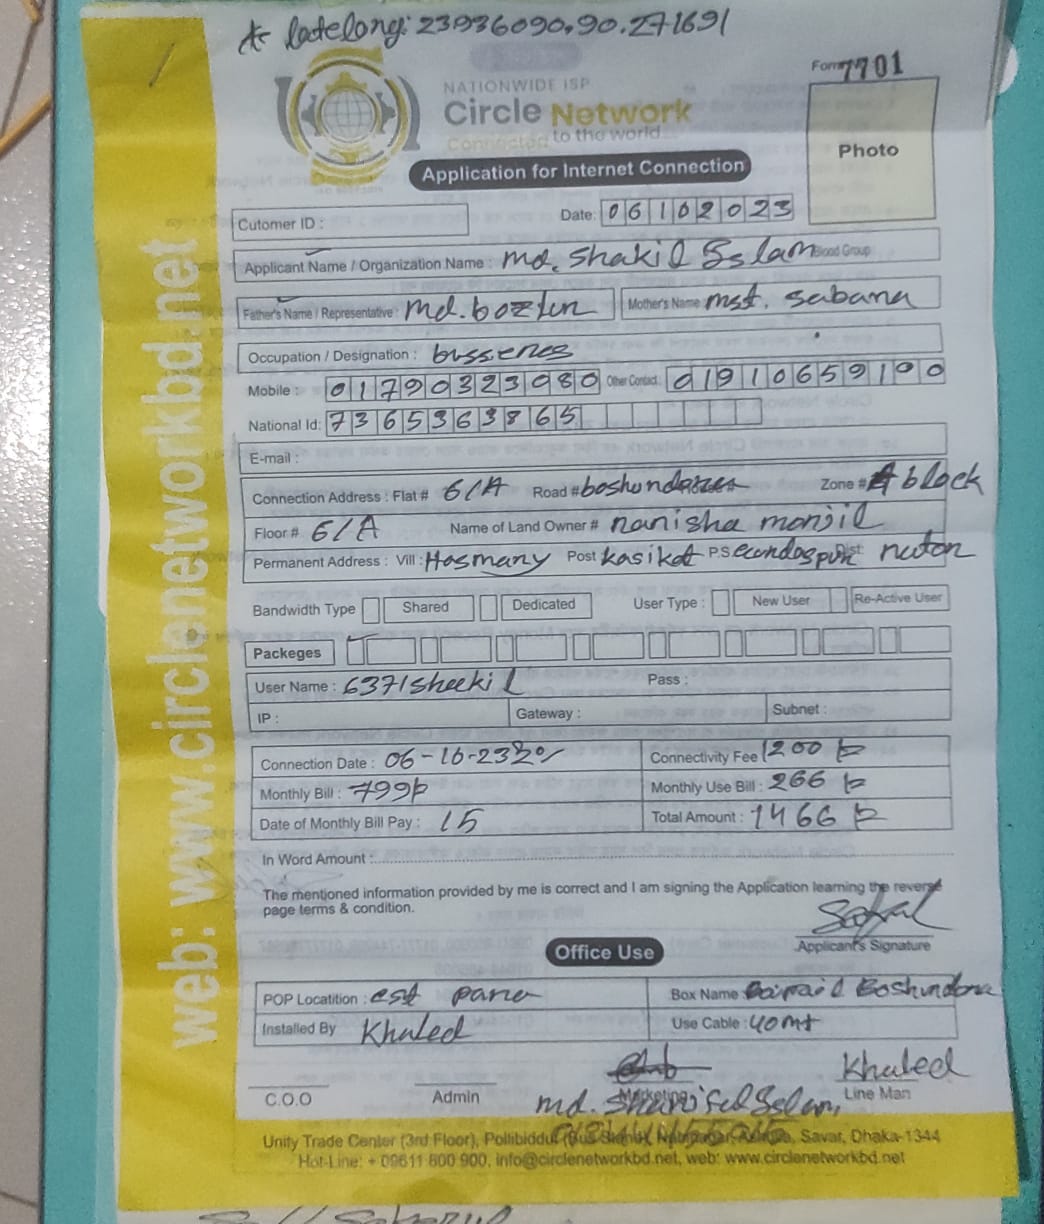 * latelong: 23936090,90.271691
Form 7701
NATIONWIDE ISP
Circle Network
Connected to the world
Photo
Application for Internet Connection
Cutomer ID :
Date: 06102023
Applicant Name / Organization Name : md. Shakil Islam Blood Group
Father's Name / Representative : md. bozlur Mother's Name mst. Sabana
Occupation / Designation : bussenes
Mobile : 01790323080 Other Contact : 01910659100
National Id: 7365363865
E-mail :
Connection Address : Flat # 6/A Road # boshundara Zone # A block
Floor # 6/A Name of Land Owner # nanisha monjil
Permanent Address : Vill : Hasmany Post kasikat P.S Dist: naton
Bandwidth Type Shared Dedicated User Type : New User Re-Active User
Packeges
User Name : 6371sheekil Pass :
IP : Gateway : Subnet :
Connection Date : 06-10-23 Connectivity Fee 1200 tk
Monthly Bill : 799 Monthly Use Bill : 266 tk
Date of Monthly Bill Pay : 15 Total Amount : 1466 tk
In Word Amount :
The mentioned information provided by me is correct and I am signing the Application learning the reverse
page terms & condition.
Applicant's Signature
Office Use
POP Locatition : est para Box Name Boipail Boshundora
Installed By Khaled Use Cable : 40mt
Khaled
C.O.O Admin Marketing Line Man
md. Shariful Islam
Unity Trade Center (3rd Floor), Pollibiddut Savar, Dhaka-1344
Hot-Line: + 09611 800 900, info@circlenetworkbd.net, web: www.circlenetworkbd.net
web: www.circlenetworkbd.net